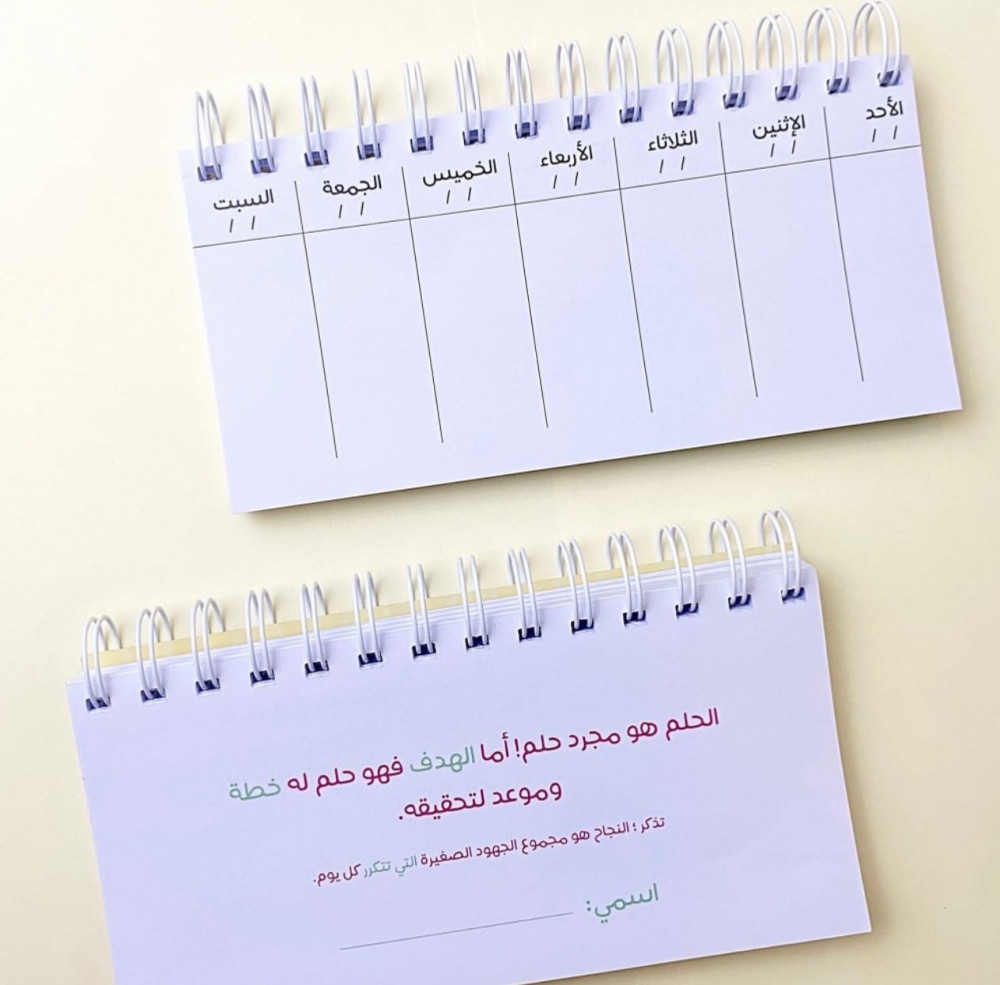 الأحد الإثنين الثلاثاء الأربعاء الخميس الجمعة السبت
/ / / / / / / / / / / / / /
الحلم هو مجرد حلم! أما الهدف فهو حلم له خطة
وموعد لتحقيقه.
تذكر ؛ النجاح هو مجموع الجهود الصغيرة التي تتكرر كل يوم.
اسمي: ____________